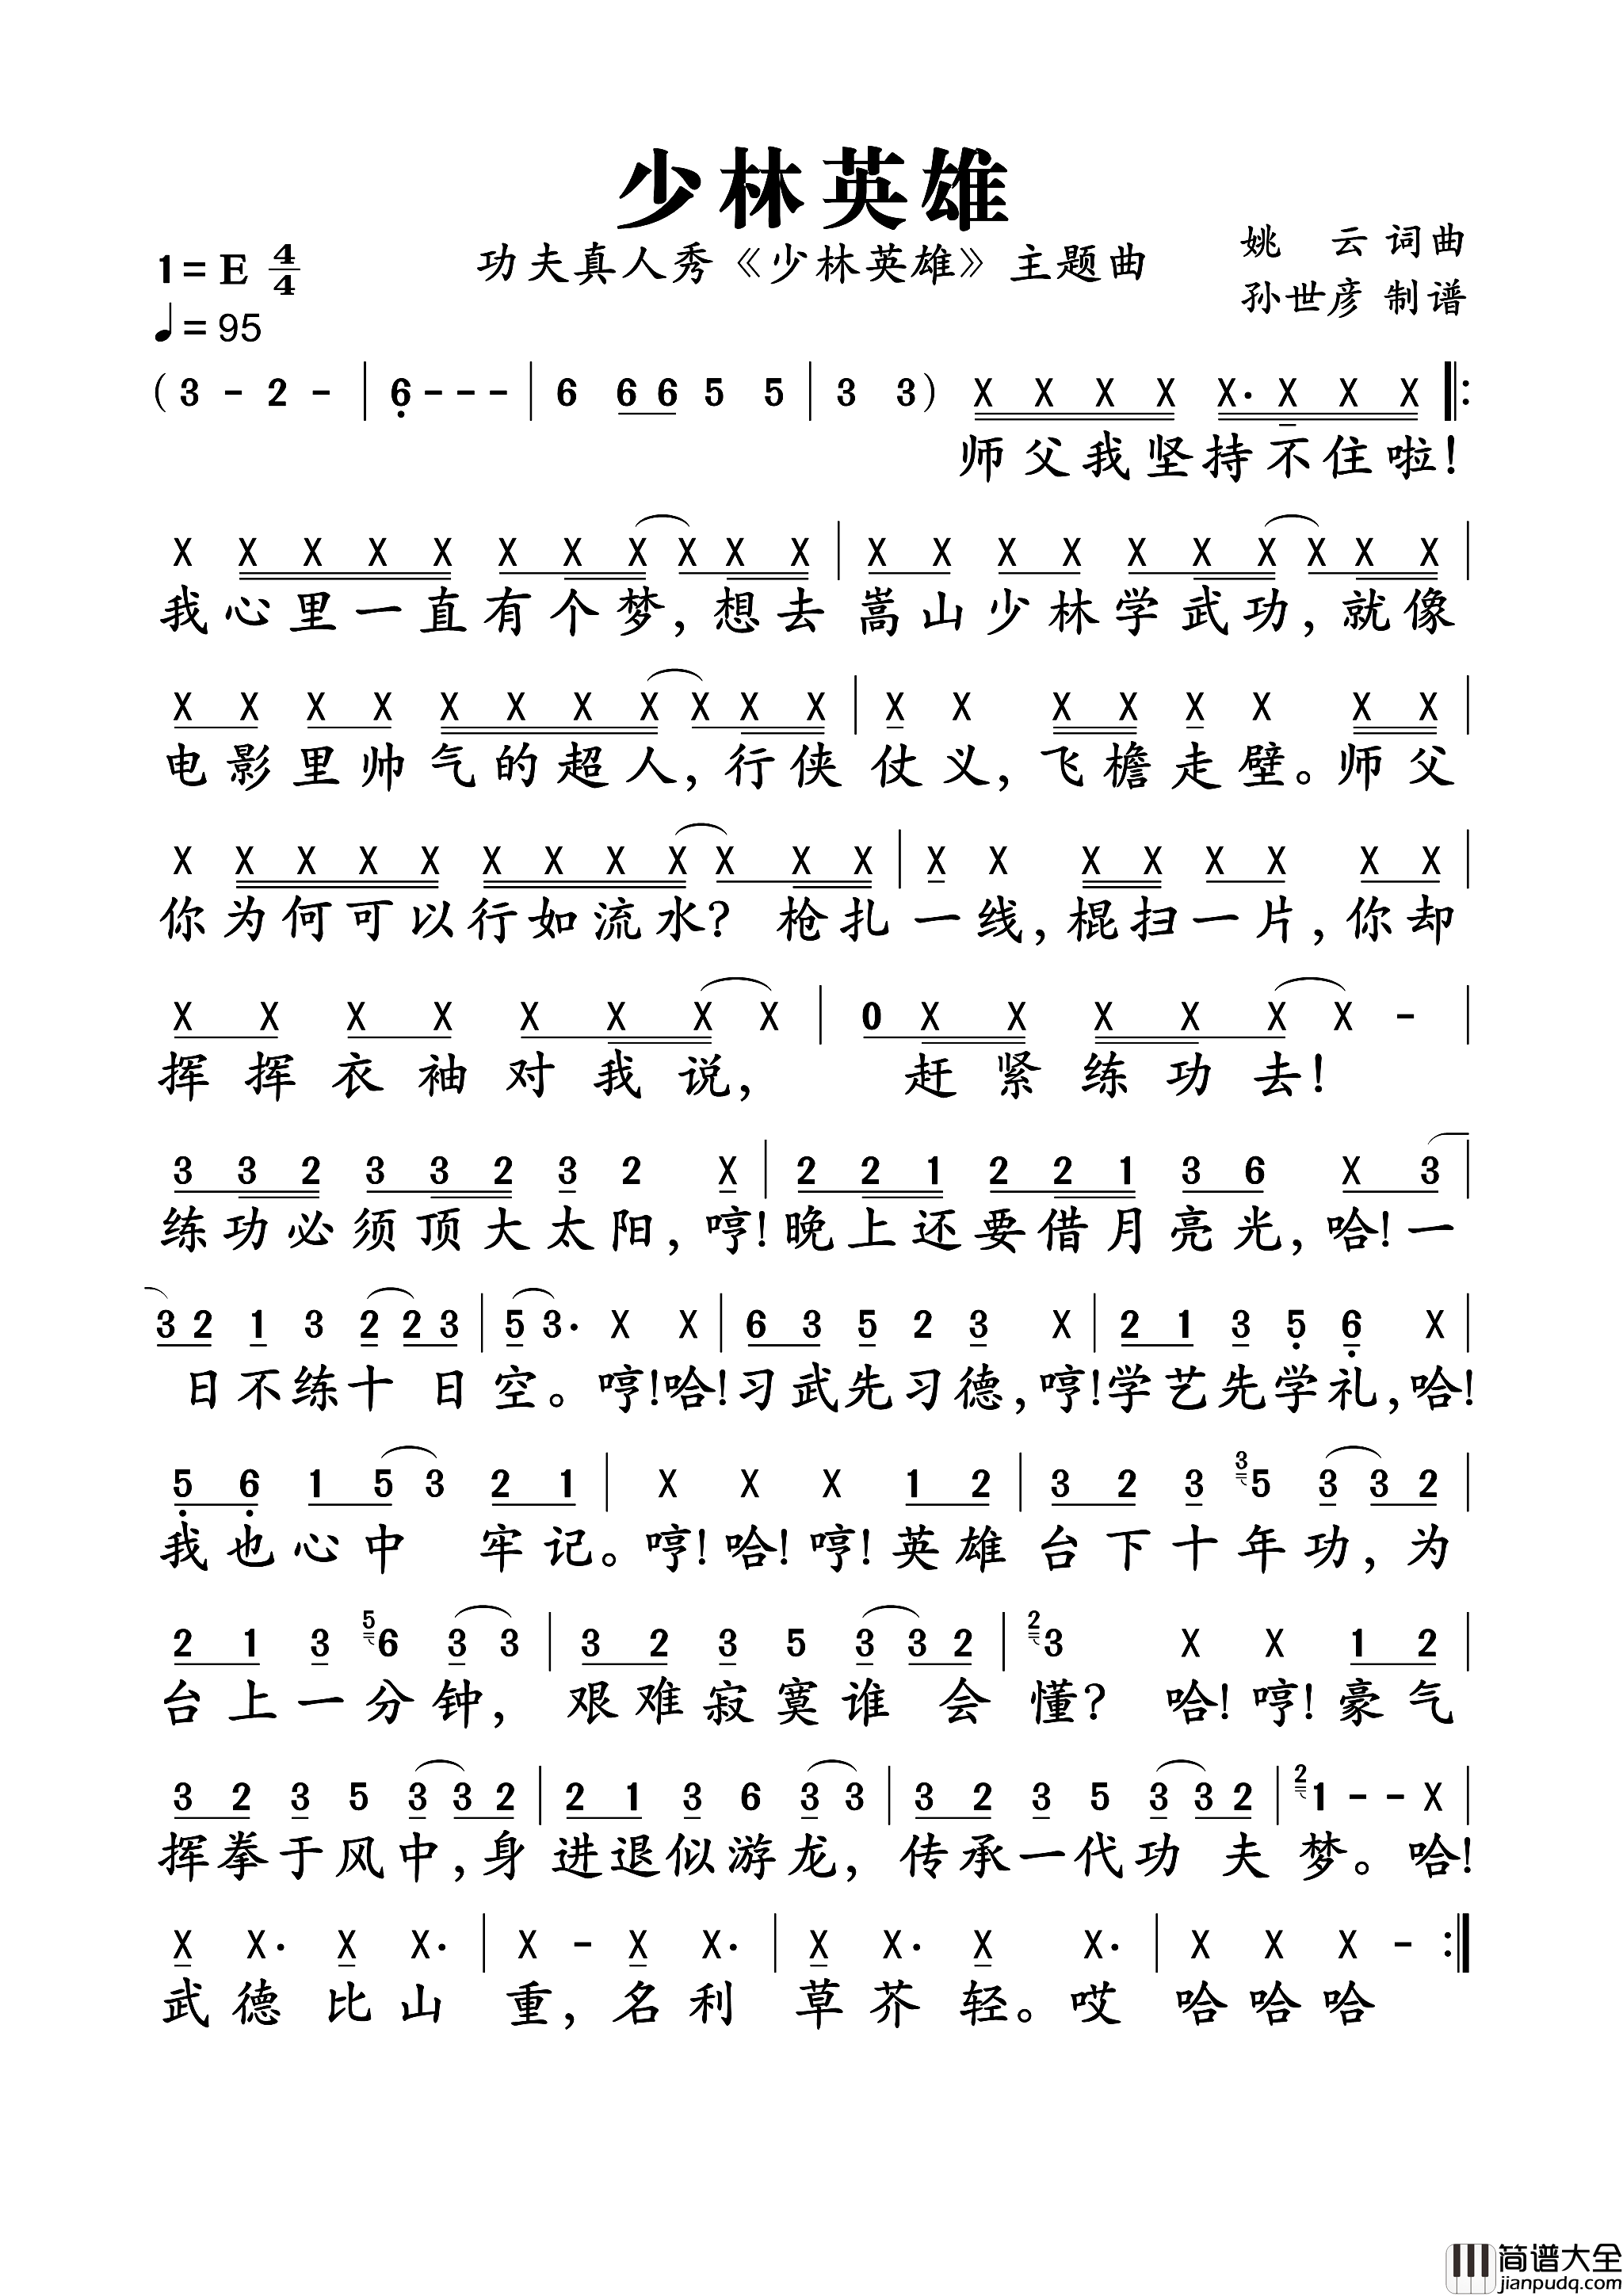 少林英雄
功夫真人秀《少林英雄》主题曲
姚 云 词曲
孙世彦 制谱
1=E 4/4
♩=95
(3 - 2 - | 6 - - - | 6 6 6 5 5 | 3 3) X X X X X. X X X |:
师父我坚持不住啦!
X X X X X X X X X X X | X X X X X X X X X X |
我心里一直有个梦,想去嵩山少林学武功,就像
X X X X X X X X X X X | X X X X X X X X |
电影里帅气的超人,行侠仗义,飞檐走壁。师父
X X X X X X X X X X X X | X X X X X X X X |
你为何可以行如流水?枪扎一线,棍扫一片,你却
X X X X X X X X | 0 X X X X X X - |
挥挥衣袖对我说,赶紧练功去!
3 3 2 3 3 2 3 2 X | 2 2 1 2 2 1 3 6 X 3 |
练功必须顶大太阳,哼!晚上还要借月亮光,哈!一
3 2 1 3 2 2 3 | 5 3. X X | 6 3 5 2 3 X | 2 1 3 5 6 X |
日不练十日空。哼!哈!习武先习德,哼!学艺先学礼,哈!
5 6 1 5 3 2 1 | X X X 1 2 | 3 2 3 3 5 3 3 2 |
我也心中牢记。哼!哈!哼!英雄台下十年功,为
2 1 3 5 6 3 3 | 3 2 3 5 3 3 2 | 2 3 X X 1 2 |
台上一分钟,艰难寂寞谁会懂?哈!哼!豪气
3 2 3 5 3 3 2 | 2 1 3 6 3 3 | 3 2 3 5 3 3 2 | 2 1 - - X |
挥拳于风中,身进退似游龙,传承一代功夫梦。哈!
X X. X X. | X - X X. | X X. X X. | X X X - :|
武德比山重,名利草芥轻。哎哈哈哈
简谱大全
jianpudq.com